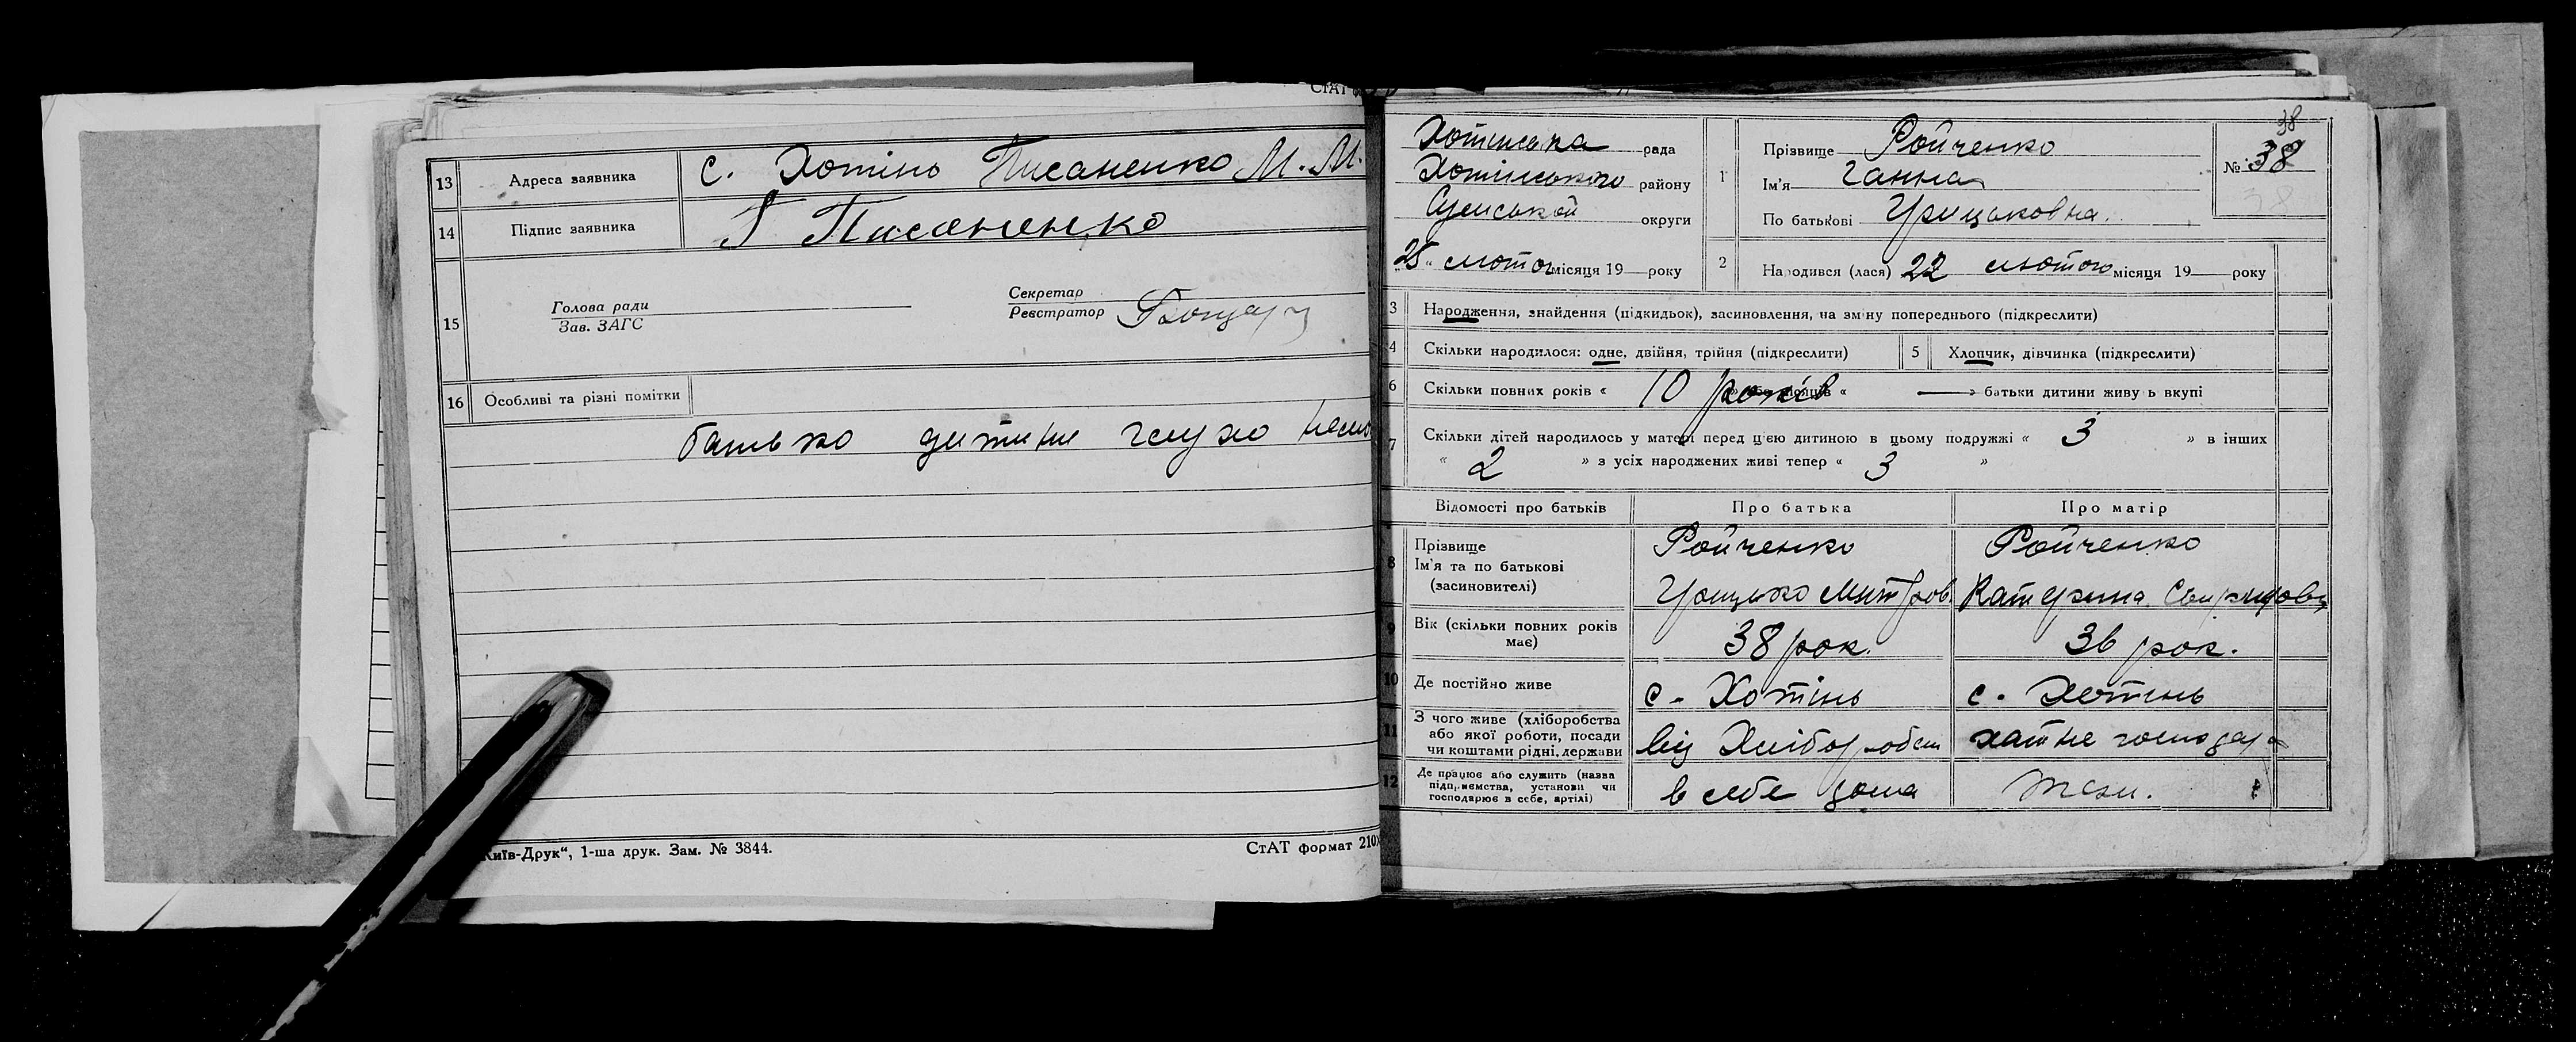 СтАТ
13 Адреса заявника с. Хотінь Писаненко М. М.
14 Підпис заявника Писаненко
15 Голова ради
Зав. ЗАГС
Секретар
Реєстратор
16 Особливі та різні помітки
батько дитини глухо немо
"Київ-Друк“, 1-ша друк. Зам. № 3844.
СтАТ формат 210
Хотінська рада
Хотінського району
Сумської округи
25 " лютого місяця 19 року
1 Прізвище Ройченко
Ім'я Ганна
По батькові Грицьковна.
38
№ 38
38
2 Народився (лася) 22 лютого місяця 19 року
3 Народження, знайдення (підкидьок), засиновлення, на зміну попереднього (підкреслити)
4 Скільки народилося: одне, двійня, трійня (підкреслити)
5 Хлопчик, дівчинка (підкреслити)
6 Скільки повних років « 10 років « » батьки дитини живу ь вкупі
7 Скільки дітей народилось у матері перед цією дитиною в цьому подружжі « 3 » в інших
« 2 » з усіх народжених живі тепер « 3 »
Відомості про батьків Про батька Про матір
8 Прізвище
Ім'я та по батькові
(засиновителі)
Ройченко
Грицько Митров.
Ройченко
Катерина Свиридовн
9 Вік (скільки повних років має) 38 рок. 36 рок.
10 Де постійно живе с. Хотінь с. Хотінь
11 З чого живе (хліборобства
або якої роботи, посади
чи коштами рідні, держави
від Хліборобст
хатне господар
12 Де працює або служить (назва
підприємства, установи чи
господарює в себе, артілі)
в себе дома
теж.